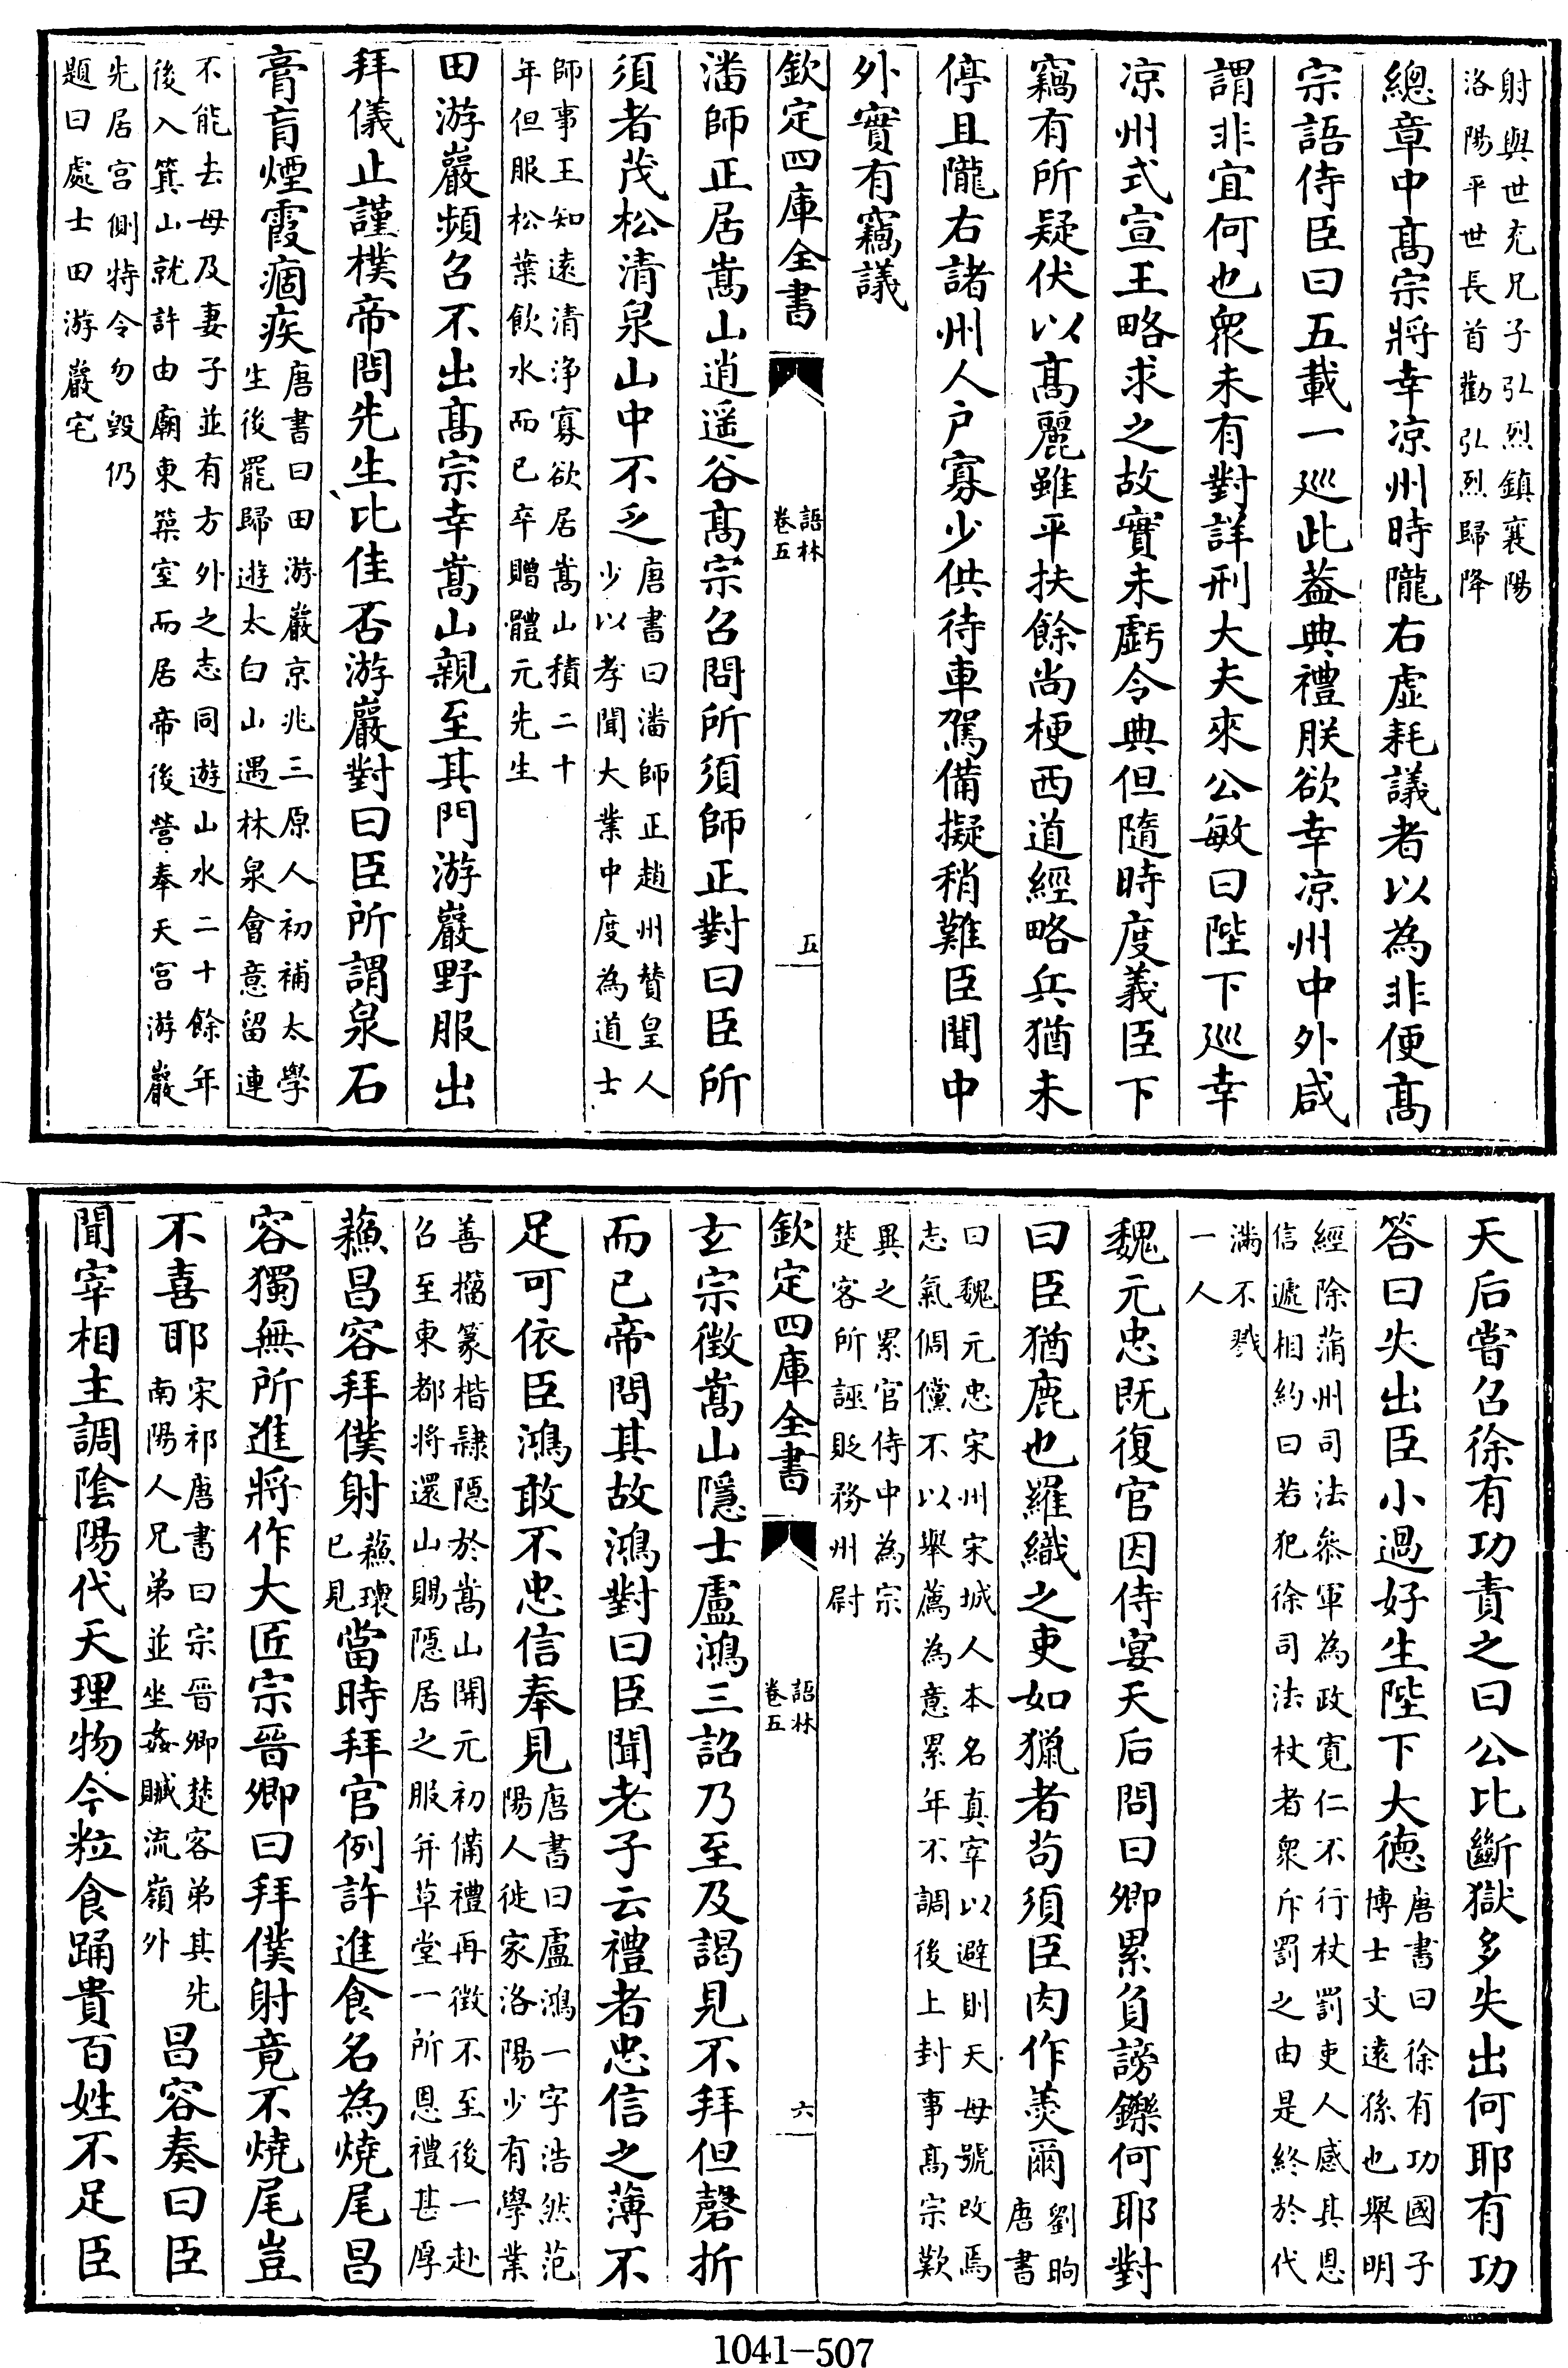 射與世充兄子弘烈鎮襄陽
洛陽平世長首勸弘烈歸降
總章中髙宗將幸凉州時隴右虚耗議者以為非便髙
宗語侍臣曰五載一廵此葢典禮朕欲幸凉州中外咸
謂非宜何也衆未有對詳刑大夫來公敏曰陛下廵幸
凉州式宣王略求之故實未虧令典但隨時度義臣下
竊有所疑伏以髙麗雖平扶餘尚梗西道經略兵猶未
停且隴右諸州人户寡少供待車駕備擬稍難臣聞中
外實有竊議
欽定四庫全書
語林
卷五
五
潘師正居嵩山逍遥谷髙宗召問所須師正對曰臣所
須者茂松清泉山中不乏
唐書曰潘師正趙州贊皇人
少以孝聞大業中度為道士
師事王知遠清浄寡欲居嵩山積二十
年但服松葉飲水而已卒贈體元先生
田游巖頻召不出髙宗幸嵩山親至其門游巖野服出
拜儀止謹樸帝問先生比佳否游巖對曰臣所謂泉石
膏肓煙霞痼疾
唐書曰田游巖京兆三原人初補太學
生後罷歸遊太白山遇林泉會意留連
不能去母及妻子並有方外之志同遊山水二十餘年
後入箕山就許由廟東築室而居帝後營奉天宫游巖
先居宫側特令勿毁仍
題曰處士田游巖宅
天后嘗召徐有功責之曰公比斷獄多失出何耶有功
答曰失出臣小過好生陛下大德
唐書曰徐有功國子
博士文遠孫也舉明
經除蒲州司法叅軍為政寛仁不行杖罰吏人感其恩
信遞相約曰若犯徐司法杖者衆斥罰之由是終於代
滿不戮
一人
魏元忠既復官因侍宴天后問曰卿累負謗鑠何耶對
曰臣猶鹿也羅織之吏如獵者苟須臣肉作羮爾
劉昫
唐書
曰魏元忠宋州宋城人本名真宰以避則天母號改焉
志氣倜儻不以舉薦為意累年不調後上封事髙宗歎
異之累官侍中為宗
楚客所誣貶務州尉
欽定四庫全書
語林
卷五
六
玄宗徴嵩山隱士盧鴻三詔乃至及謁見不拜但磬折
而已帝問其故鴻對曰臣聞老子云禮者忠信之薄不
足可依臣鴻敢不忠信奉見
唐書曰盧鴻一字浩然范
陽人徙家洛陽少有學業
善籀篆楷隷隠於嵩山開元初備禮再徴不至後一赴
召至東都將還山賜隠居之服并草堂一所恩禮甚厚
蘓昌容拜僕射
蘓瓌
已見
當時拜官例許進食名為燒尾昌
容獨無所進將作大匠宗晉卿曰拜僕射竟不燒尾豈
不喜耶
宋祁唐書曰宗晉卿楚客弟其先
南陽人兄弟並坐姦贓流嶺外
昌容奏曰臣
聞宰相主調陰陽代天理物今粒食踊貴百姓不足臣
1041—507